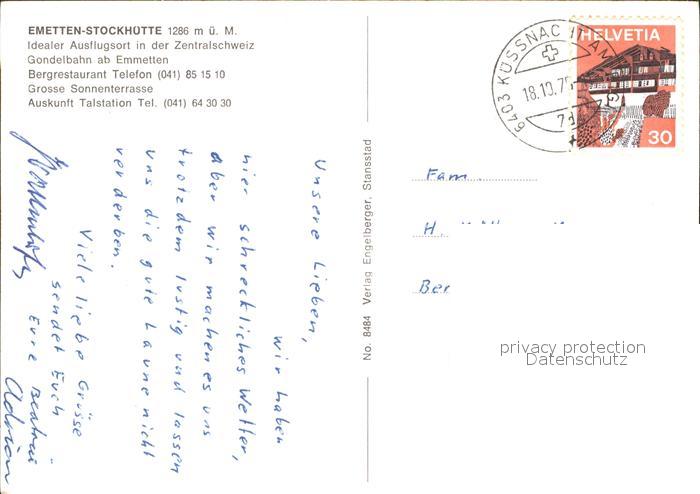 EMETTEN-STOCKHÜTTE 1286 m ü. M.
Idealer Ausflugsort in der Zentralschweiz
Gondelbahn ab Emmetten
Bergrestaurant Telefon (041) 85 15 10
Grosse Sonnenterrasse
Auskunft Talstation Tel. (041) 64 30 30
Unsere Lieben,
wir haben
hier schreckliches Wetter,
aber wir machen es uns
trotzdem lustig und lassen
uns die gute Laune nicht
verderben.
Viele liebe Grüsse
sendet Euch
Eure Beatrix
Adrian
No. 8484 Verlag Engelberger, Stansstad
6403 KÜSSNACHT AM
18.10.75
HELVETIA
30
Fam.
H.
Ber
privacy protection
Datenschutz